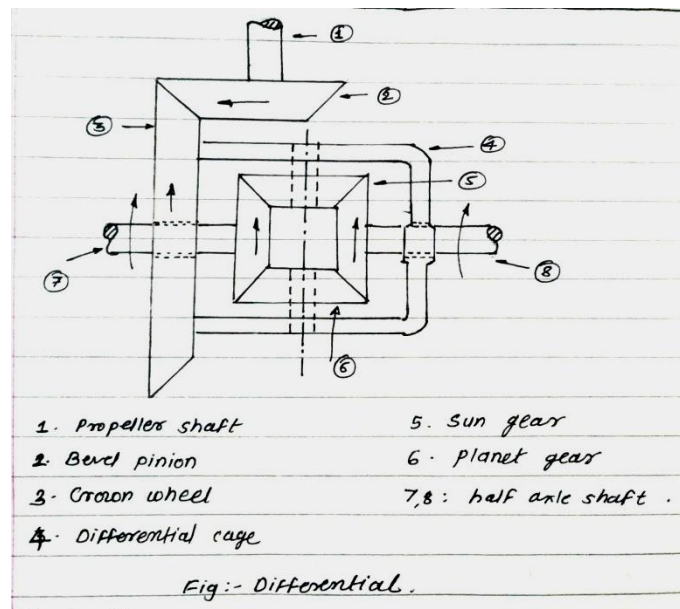 1
2
3
4
5
6
7
8
1. Propeller shaft
2. Bevel pinion
3. Crown wheel
4. Differential cage
5. Sun gear
6. Planet gear
7,8: half axle shaft.
Fig:- Differential.